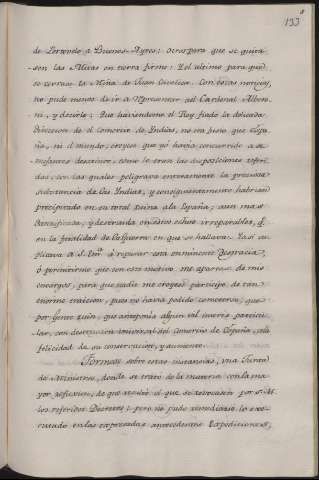 133
de Portovelo a Buenos-Ayres: Otro para que se guia
sen las Mitas en tierra firme: I el ultimo para que
se cerrase la Mina de Juan Cavelica. Con estas noticias,
no pude menos de ir a representar al Cardenal Albero
ni, y decirle; Que haviendome el Rey fiado la delicada
Direccion de el Comercio de Indias, no era justo que Espa
ña, ni el mundo, creyesen que yo havia concurrido a se
mejantes desatinos, como lo eran las disposiciones referi
das; con las quales peligrava enteramente la preciosa
substancia de las Indias, y consiguientemente habrian
precipitado en su total ruina a la España, aun mas
y destruida en estos echos irreparables, q.
en la fatalidad de la Guerra en que se hallava. I asi su
plicava a S. Em.ª ó reparar esta eminente desgracia,
ó permitirme que con este motivo me apartase de mis
encargos, para que nadie me creyese participe de tan
enorme traicion, pues no havia podido cometerse, que
por Gente ruin, que anteponia algun vil interés particu
lar, con destruccion universal del Comercio de España, a la
felicidad de su construccion, y aumento.
Formose sobre estas instancias, una Junta
de Ministros, donde se trató de la materia con la ma
yor reflexion, de que resultó el que se revocasen por S. M.
los referidos Decretos; pero no pudo remediarse lo exe
cutado en las expresadas antecedentes Expediciones,